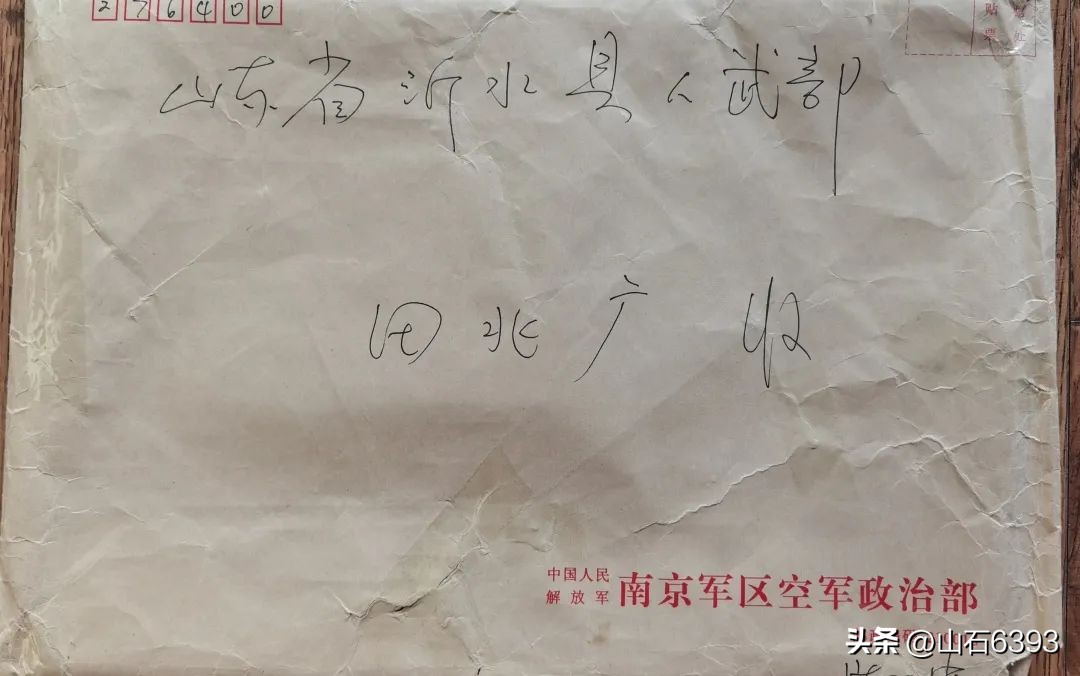 276400
贴
票
山东省沂水县人武部
田兆广 收
中国人民
解放军
南京军区空军政治部
头条 @山石6393